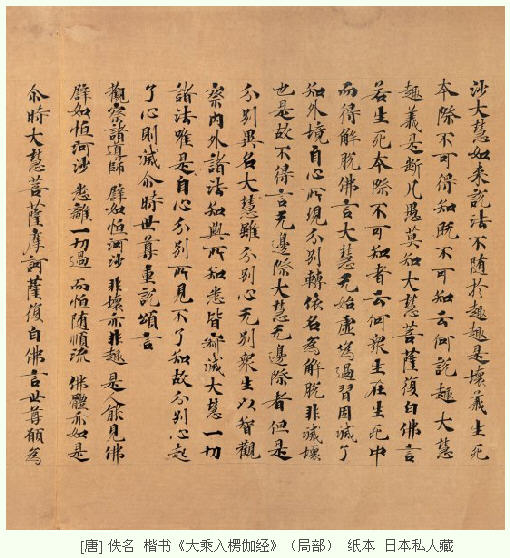 沙大慧如来說法不随於趣趣是壞義生死
本際不可得知既不可知云何說趣大慧
趣義是斷凡愚莫知大慧菩薩復白佛言
若生死本際不可知者云何衆生在生死中
而得解脫佛言大慧无始虛偽過習因滅了
知外境自心所現分別轉依名為解脫非滅壞
也是故不得言无邊際大慧无邊際者但是
分別異名大慧離分別心无別衆生以智觀
察內外諸法知與所知悉皆寂滅大慧一切
諸法唯是自心分別所見不了知故分別心起
了心則滅尒時世尊重說頌言
觀察諸導師 譬如恒河沙 非壞亦非趣 是人能見佛
譬如恒河沙 悉離一切過 而恒随順流 佛體亦如是
尒時大慧菩薩摩訶薩復白佛言世尊願為
[唐] 佚名 楷书《大乘入楞伽经》（局部） 纸本 日本私人藏